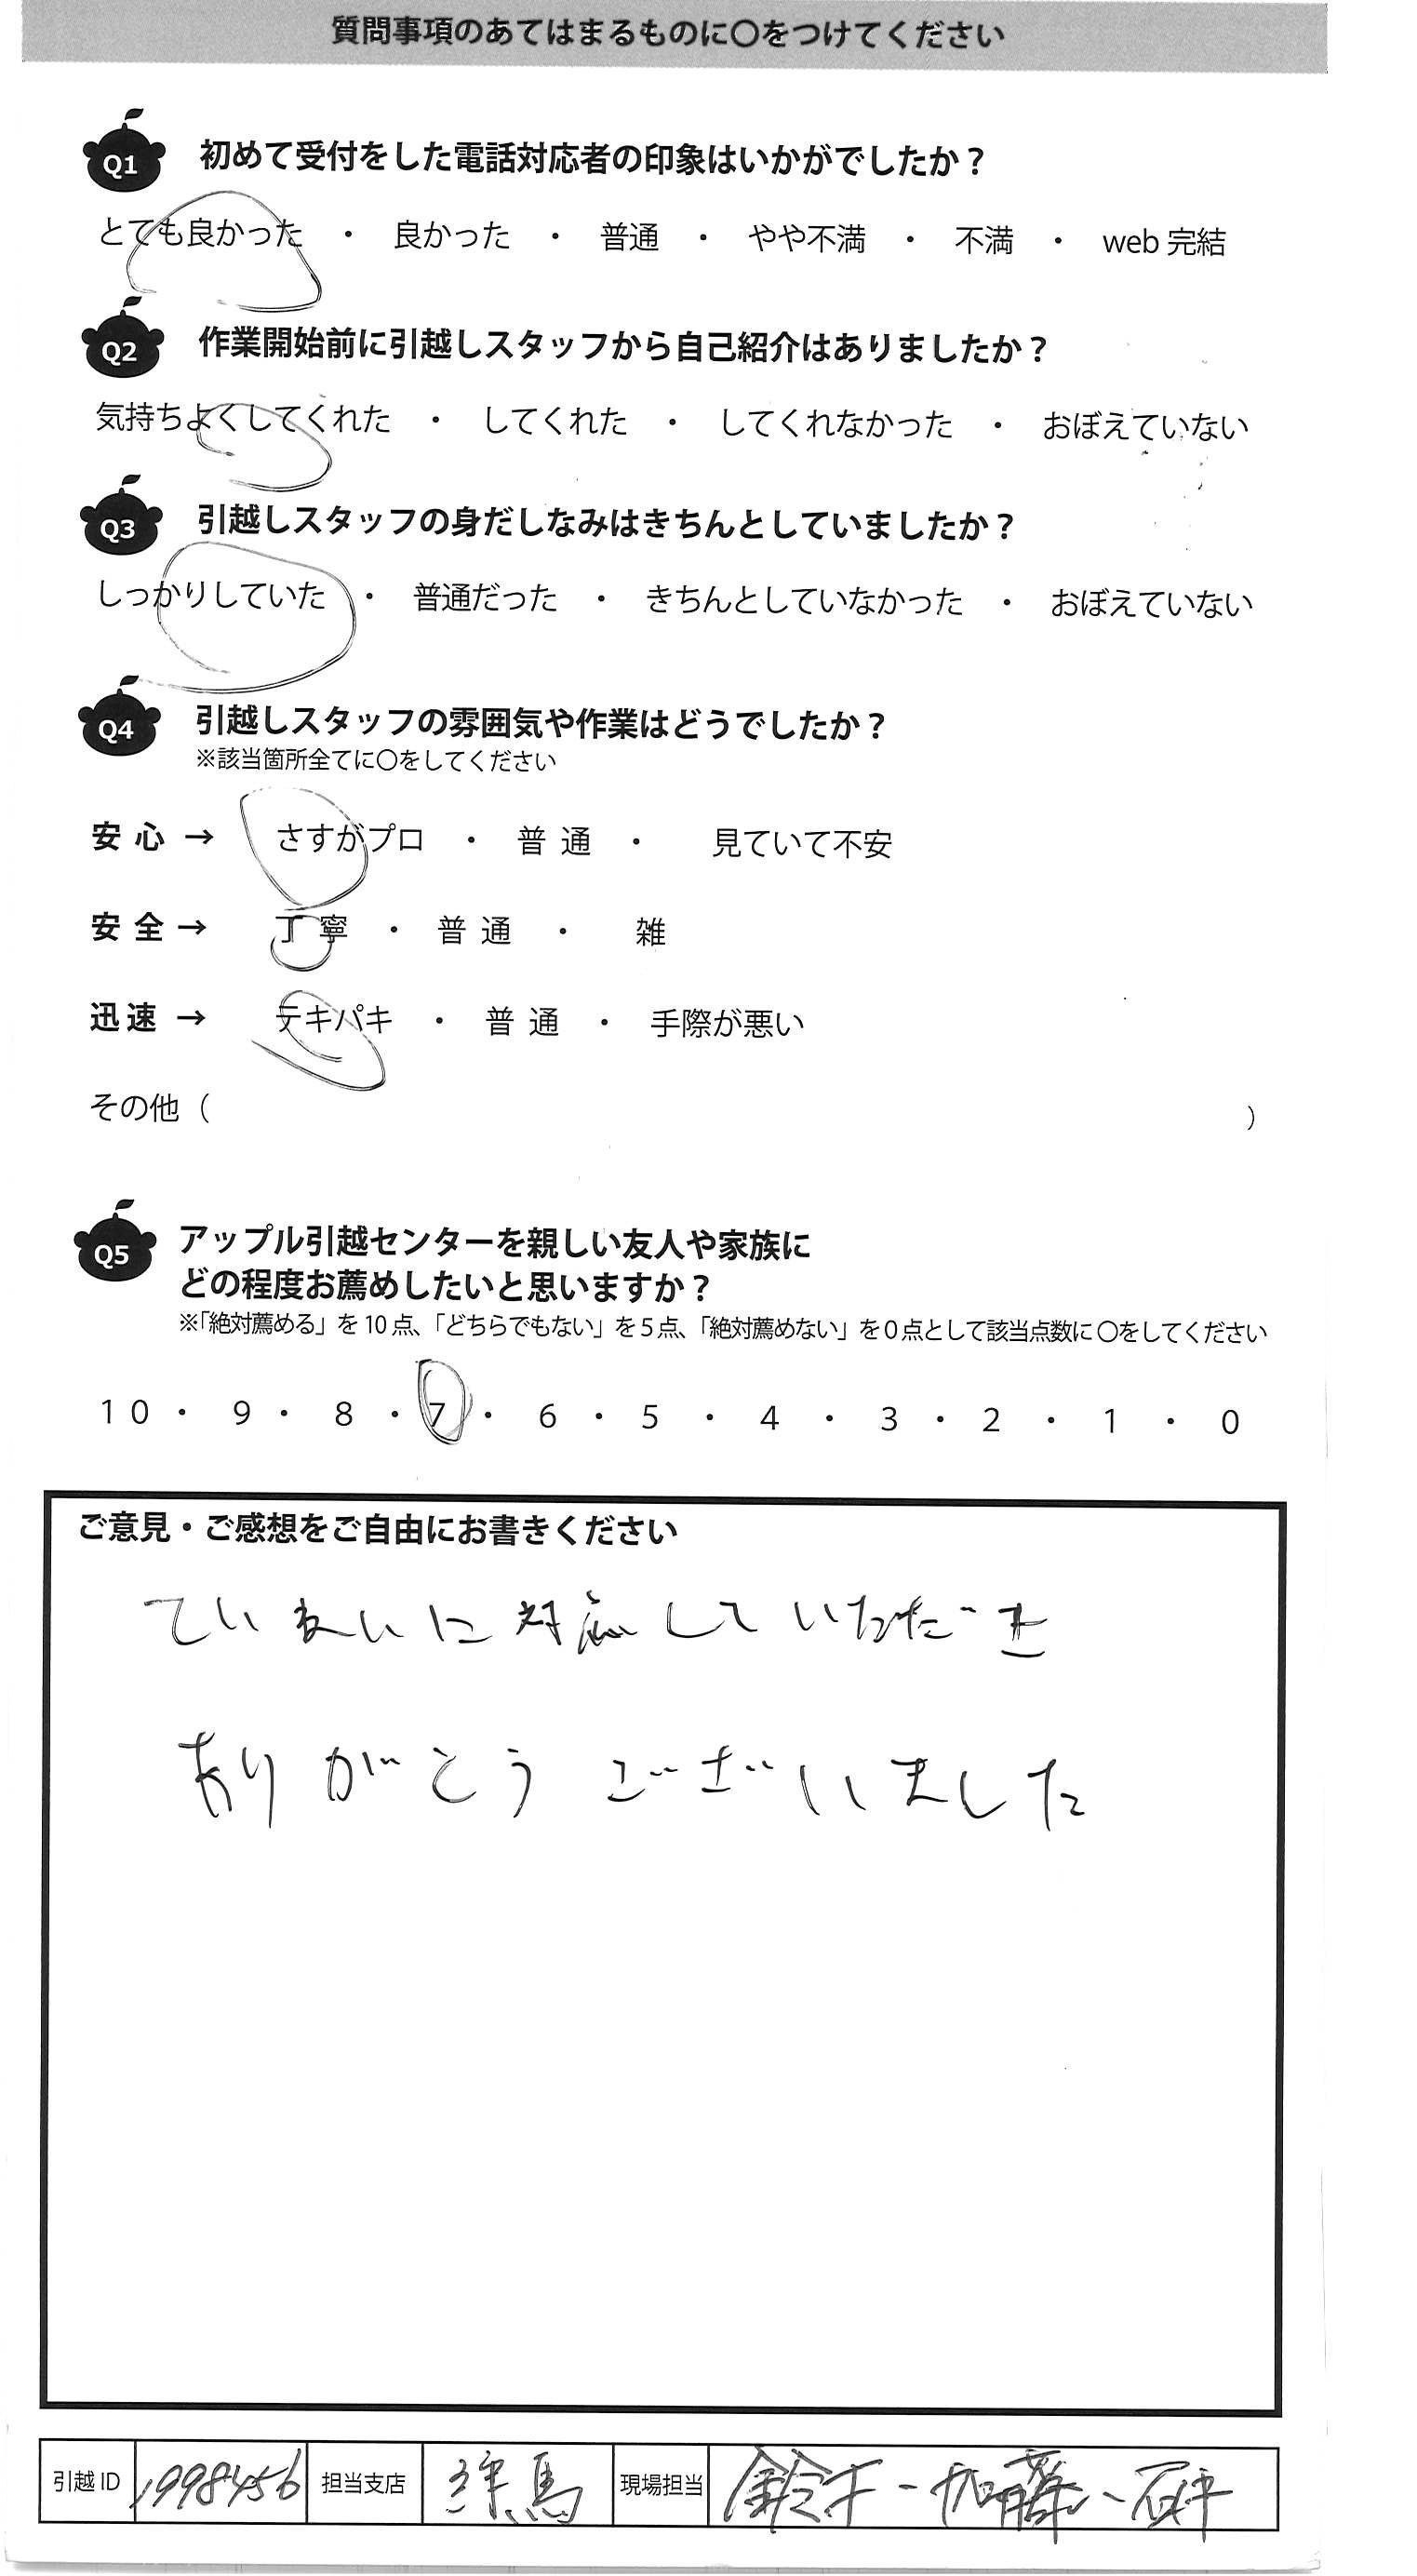 質問事項のあてはまるものに〇をつけてください
Q1 初めて受付をした電話対応者の印象はいかがでしたか？
とても良かった ・ 良かった ・ 普通 ・ やや不満 ・ 不満 ・ web 完結
Q2 作業開始前に引越しスタッフから自己紹介はありましたか？
気持ちよくしてくれた ・ してくれた ・ してくれなかった ・ おぼえていない
Q3 引越しスタッフの身だしなみはきちんとしていましたか？
しっかりしていた ・ 普通だった ・ きちんとしていなかった ・ おぼえていない
Q4 引越しスタッフの雰囲気や作業はどうでしたか？
※該当箇所全てに〇をしてください
安心 → さすがプロ ・ 普通 ・ 見ていて不安
安全 → 丁寧 ・ 普通 ・ 雑
迅速 → テキパキ ・ 普通 ・ 手際が悪い
その他（ ）
Q5 アップル引越センターを親しい友人や家族に
どの程度お薦めしたいと思いますか？
※「絶対薦める」を10点、「どちらでもない」を5点、「絶対薦めない」を0点として該当点数に〇をしてください
10 ・ 9 ・ 8 ・ 7 ・ 6 ・ 5 ・ 4 ・ 3 ・ 2 ・ 1 ・ 0
ご意見・ご感想をご自由にお書きください
ていねいに対応していただき
ありがとうございました
引越ID 1998456 担当支店 練馬 現場担当 鈴木、加藤、